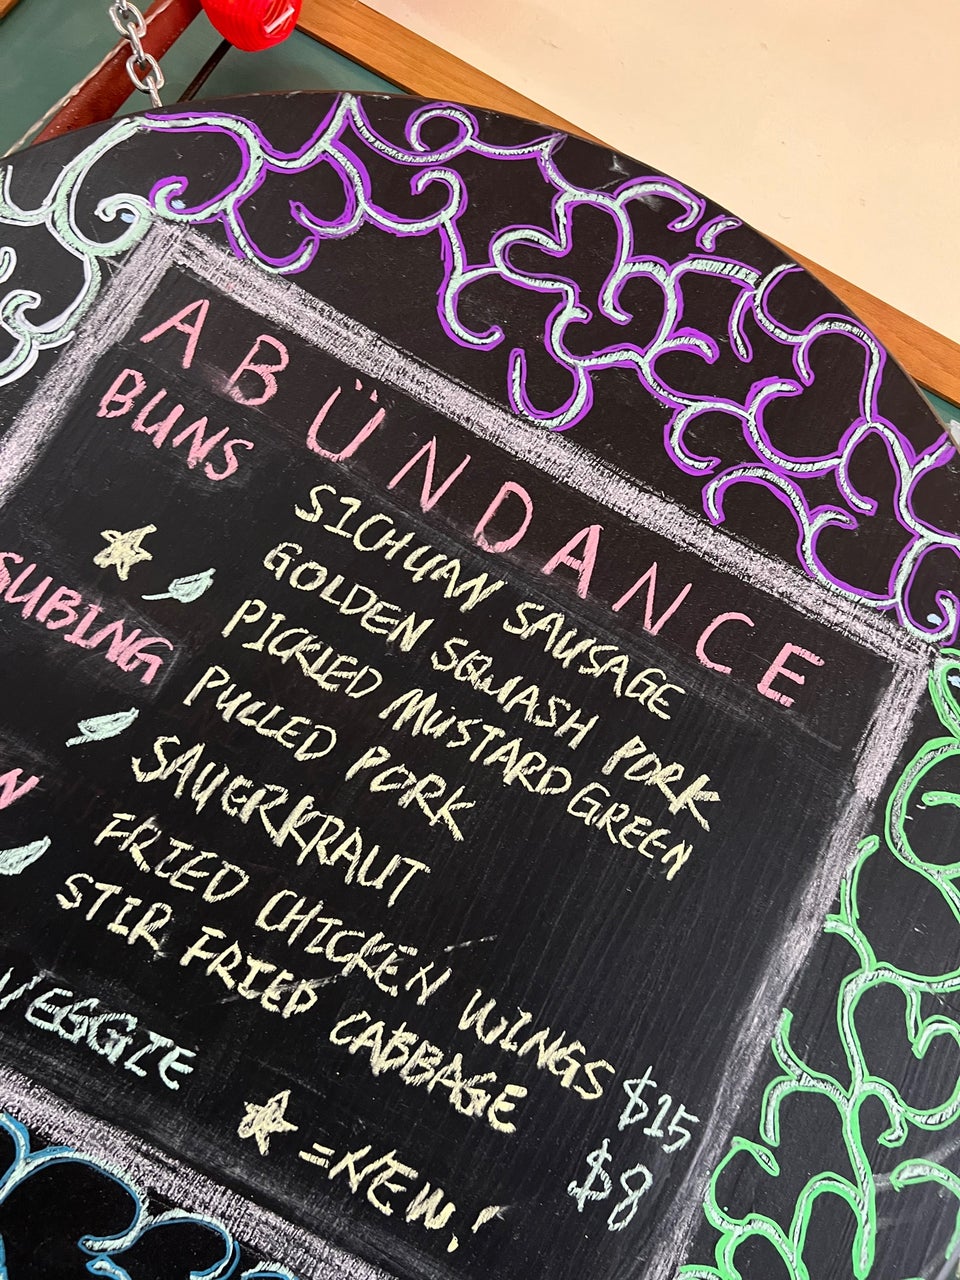 ABÜNDANCE
BUNS
SICHUAN SAUSAGE
GOLDEN SQUASH PORK
PICKLED MUSTARD GREEN
SUBING
PULLED PORK
SAUERKRAUT
N
FRIED CHICKEN WINGS $15
STIR FRIED CABBAGE $8
VEGGIE
=NEW!